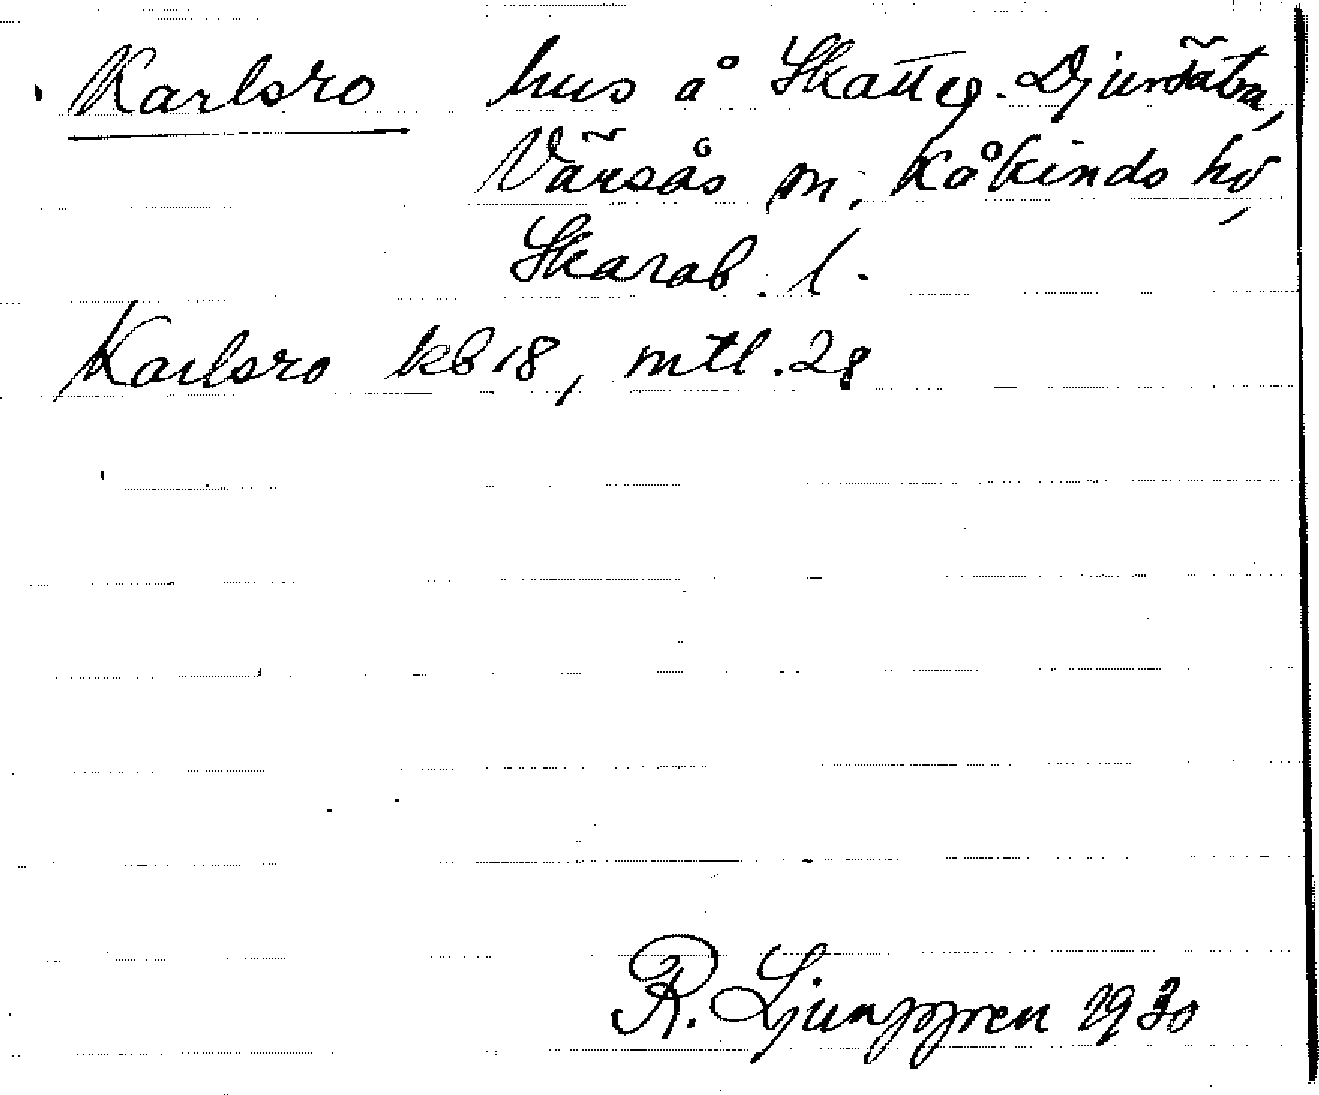 Karlsro hus å Skatteg. Djursätra,
Värsås sn, Kåkinds hd,
Skarab. l.
Karlsro kb 18, mtl. 28
R. Ljunggren 1930